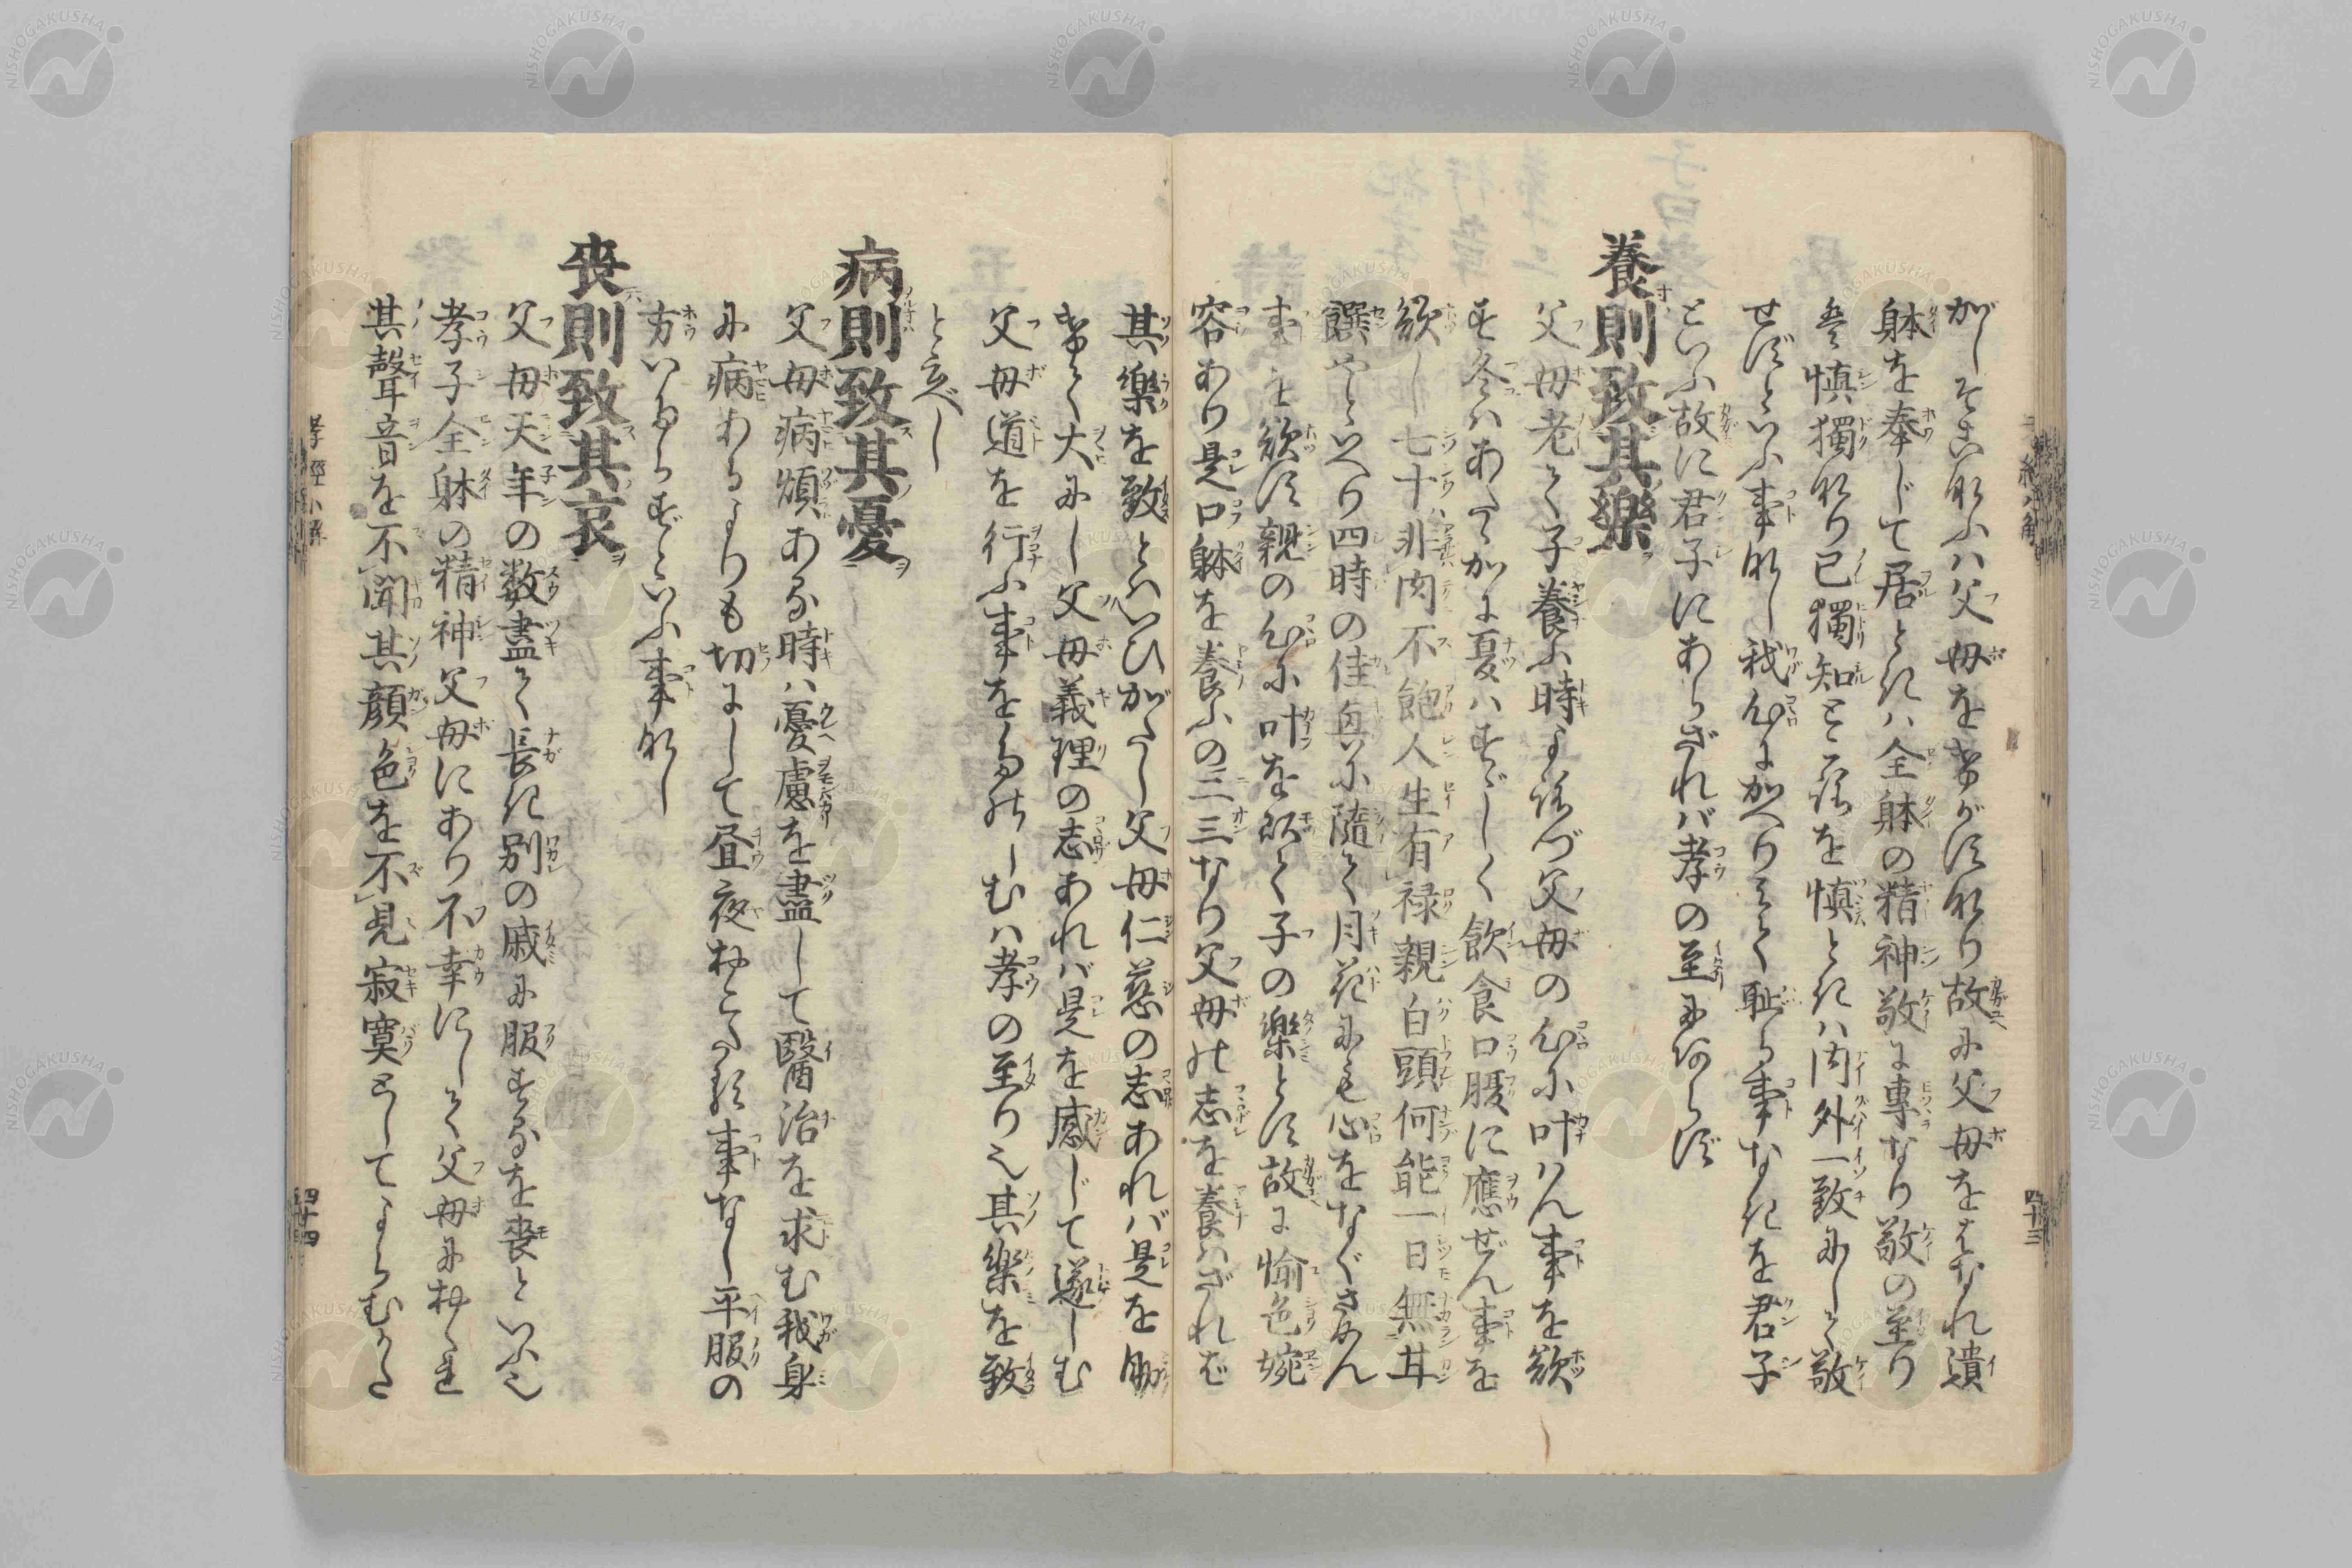 がしそこなふハ父母をけがす也故に父母をはなれ遺
躰を奉じて居ときハ全躰の精神敬に專なり敬の至り
ハ慎獨なり已獨知ところを慎ときハ内外一致にして敬
せずといふ事なし我心にかへりみて恥る事なきを君子
といふ故に君子にあらざれバ孝の至にあらず
養則致其樂
父母老て子養ふ時よろづ父母の心に叶ハん事を欲
す冬ハあたゝかに夏ハすゞしく飲食口腹に應ぜん事を
欲し七十非肉不飽人生有禄親白頭何能一日無甘
饌やといへり四時の佳興に隨て月花にも心をなぐさめん
事を欲す親の心に叶を以て子の樂とす故に愉色婉
容あり是口躰を養ふの二三なり父母の志を養ハざれば
其樂を致とハいひがたし父母仁慈の志あれバ是を助
けて大にし父母義理の志あれバ是を感じて遂しむ
父母道を行ふ事をたのしむハ孝の至り也其樂を致
と云べし
病則致其憂
父母病煩ある時ハ憂慮を盡して醫治を求む我身
に病あるよりも切にして昼夜おこたる事なし平服の
方いたらずといふ事なし
喪則致其哀
父母天年の数盡て長き別の戚に服するを喪といふ也
孝子全躰の精神父母にあり不幸にして父母におくれ
其聲音を不聞其顔色を不見寂寞としてよらむかた
孝經小解
四十三
四十四